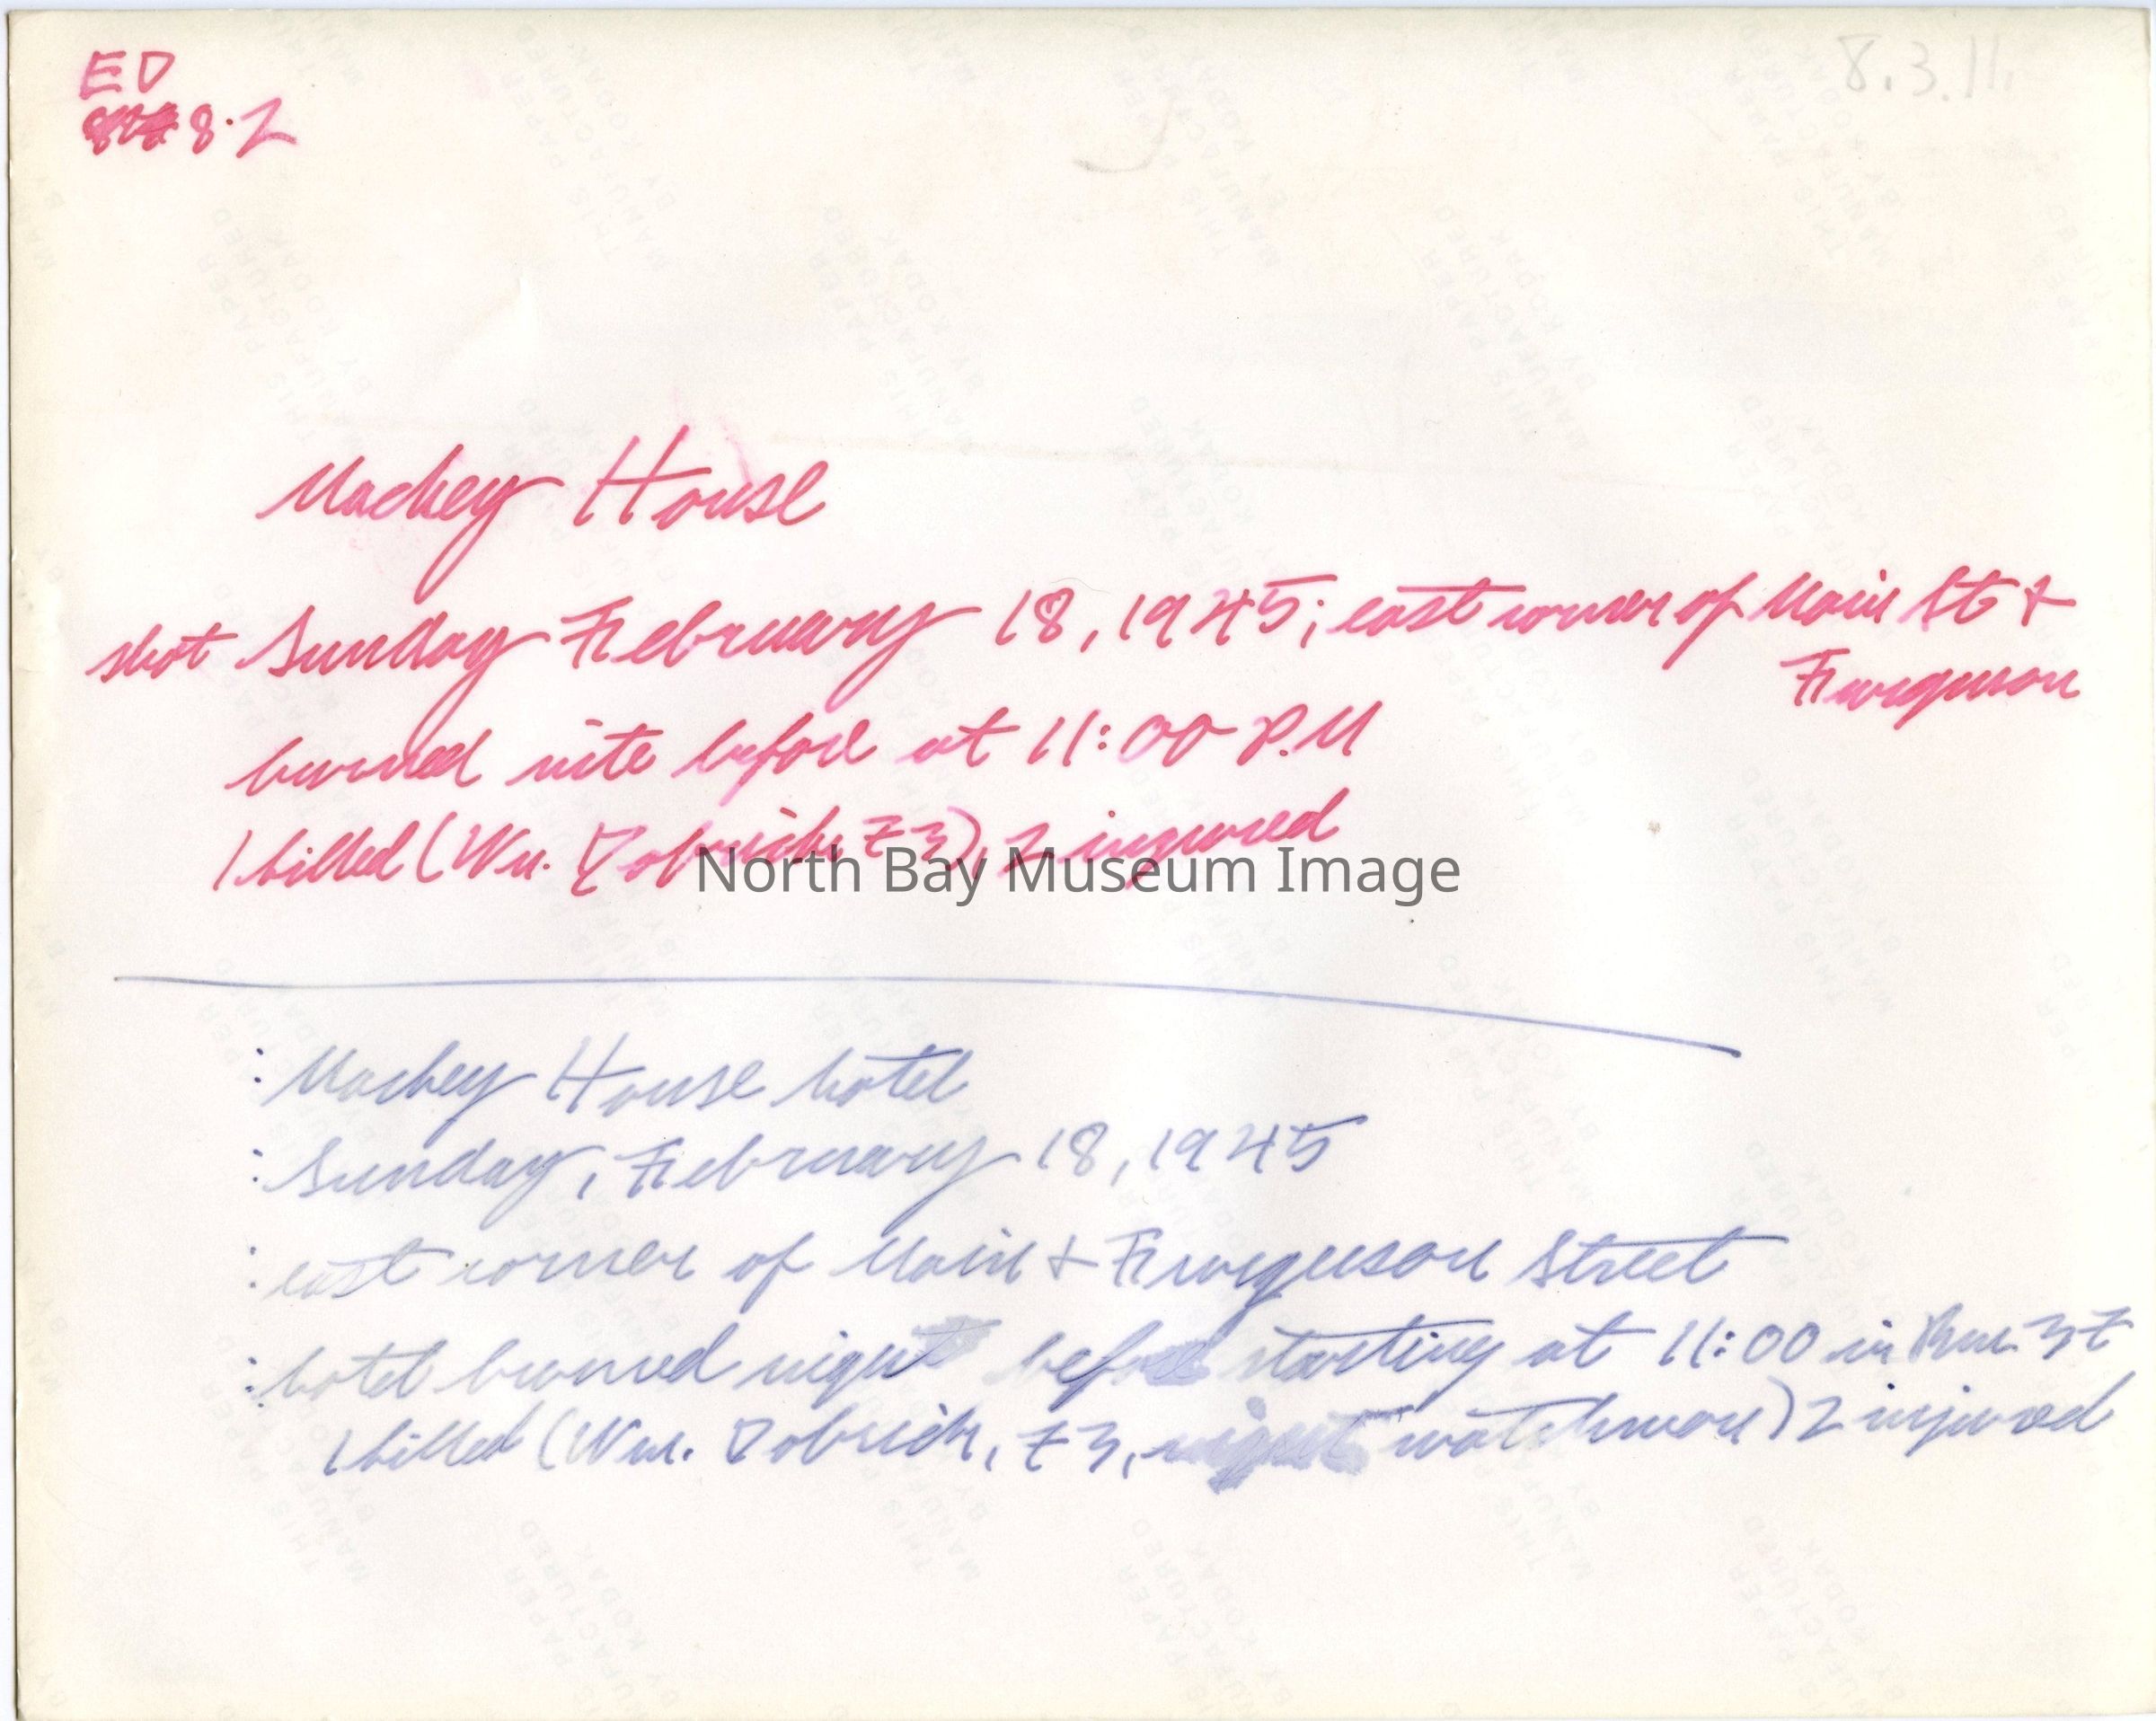 ED
8.2
8.3.11.
Mackey House
shot Sunday February 18, 1945; east corner of Main St +
Furguson
burned nite before at 11:00 P.M
1 killed (Wm. Dobrich 73), 2 injured
North Bay Museum Image
: Mackey House hotel
: Sunday, February 18, 1945
: east corner of Main + Furguson Street
: hotel burned night before starting at 11:00 in Rm. 37
1 killed (Wm. Dobrich, 73, night watchman) 2 injured
THIS PAPER
MANUFACTURED
BY KODAK